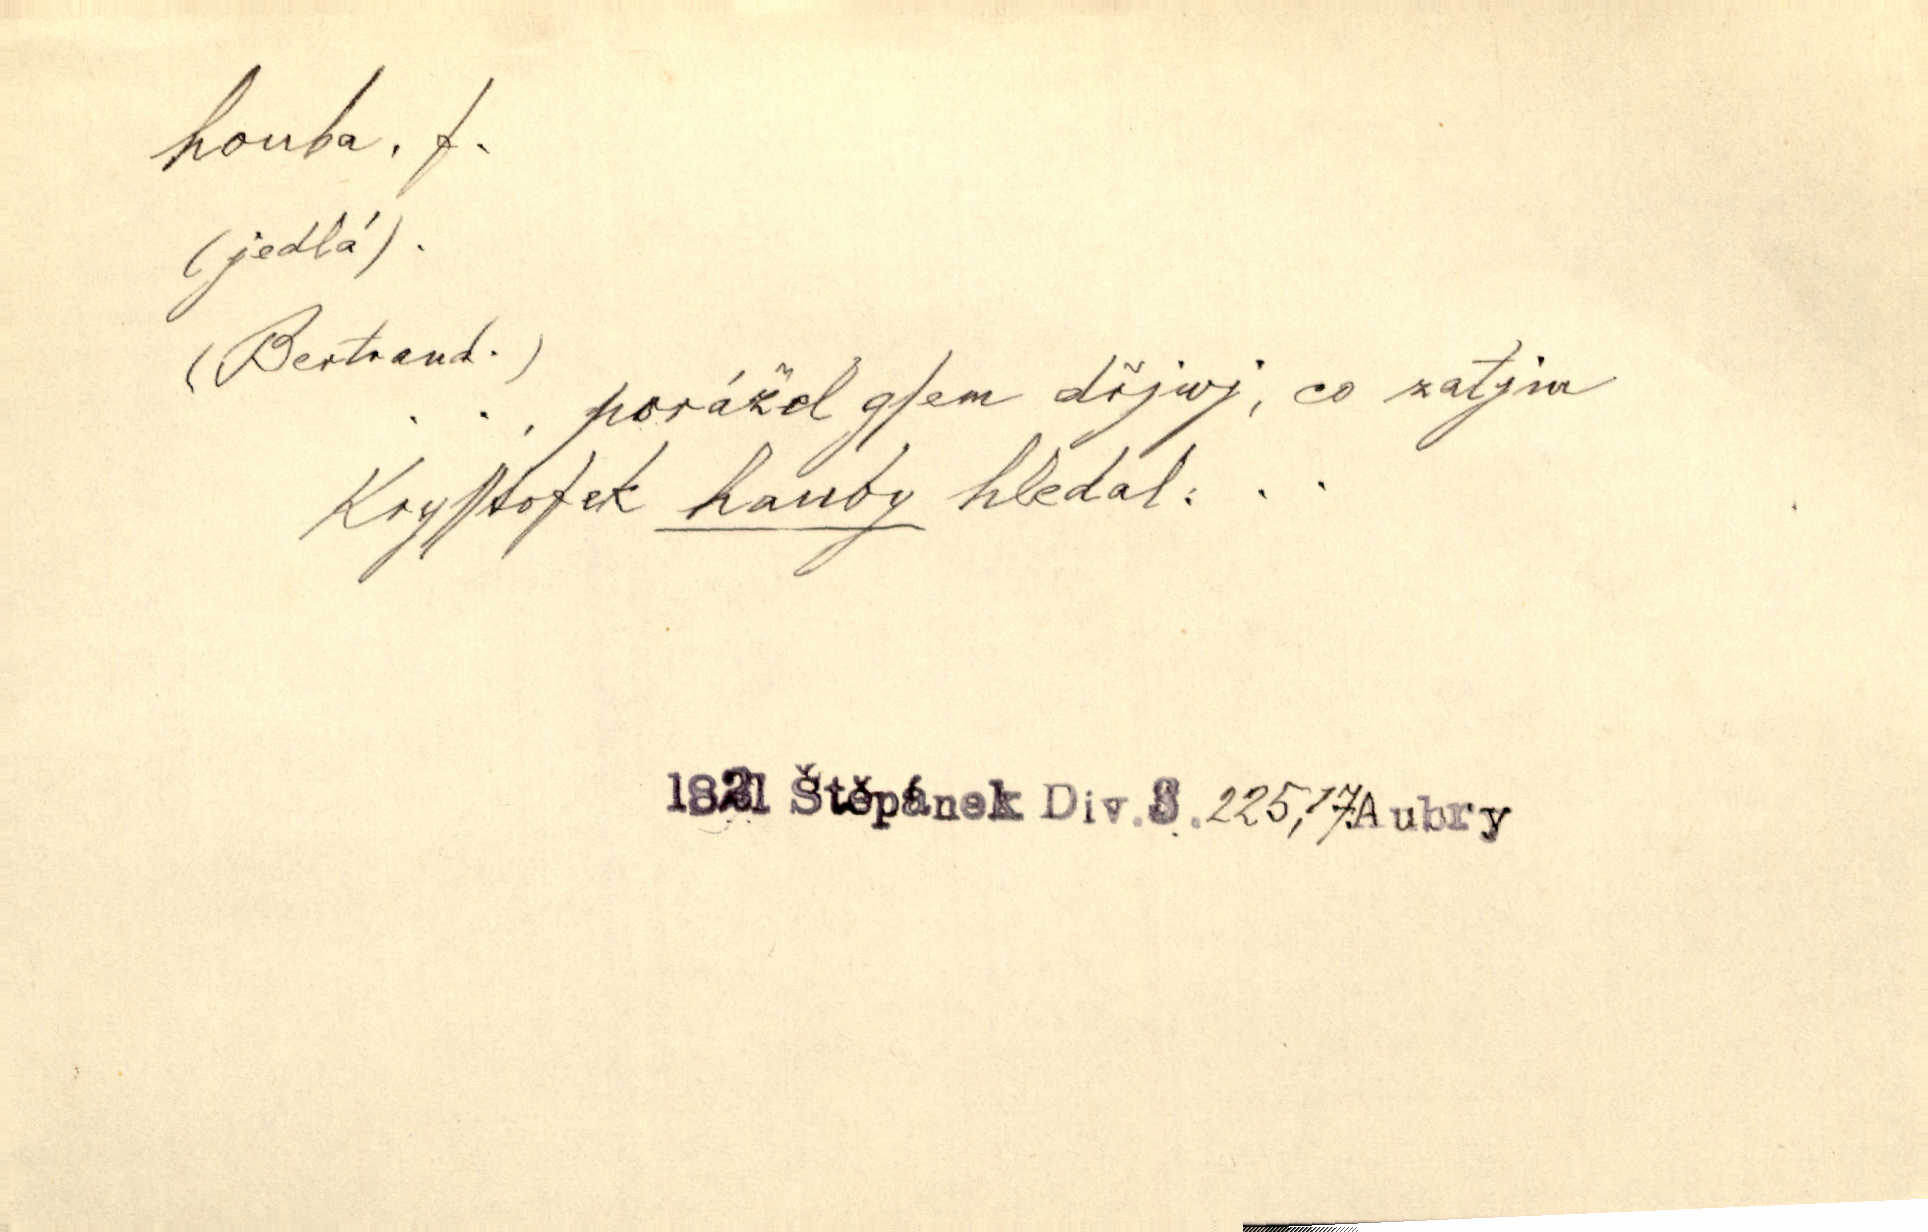 houba, f.
(jedlá).
(Bertrand.)
. . , porážěl gſem dřjwj, co zatjm
Kryſſtofek hauby hledal: . .
1821 Štěpánek Div. 3. 225,17 Aubry